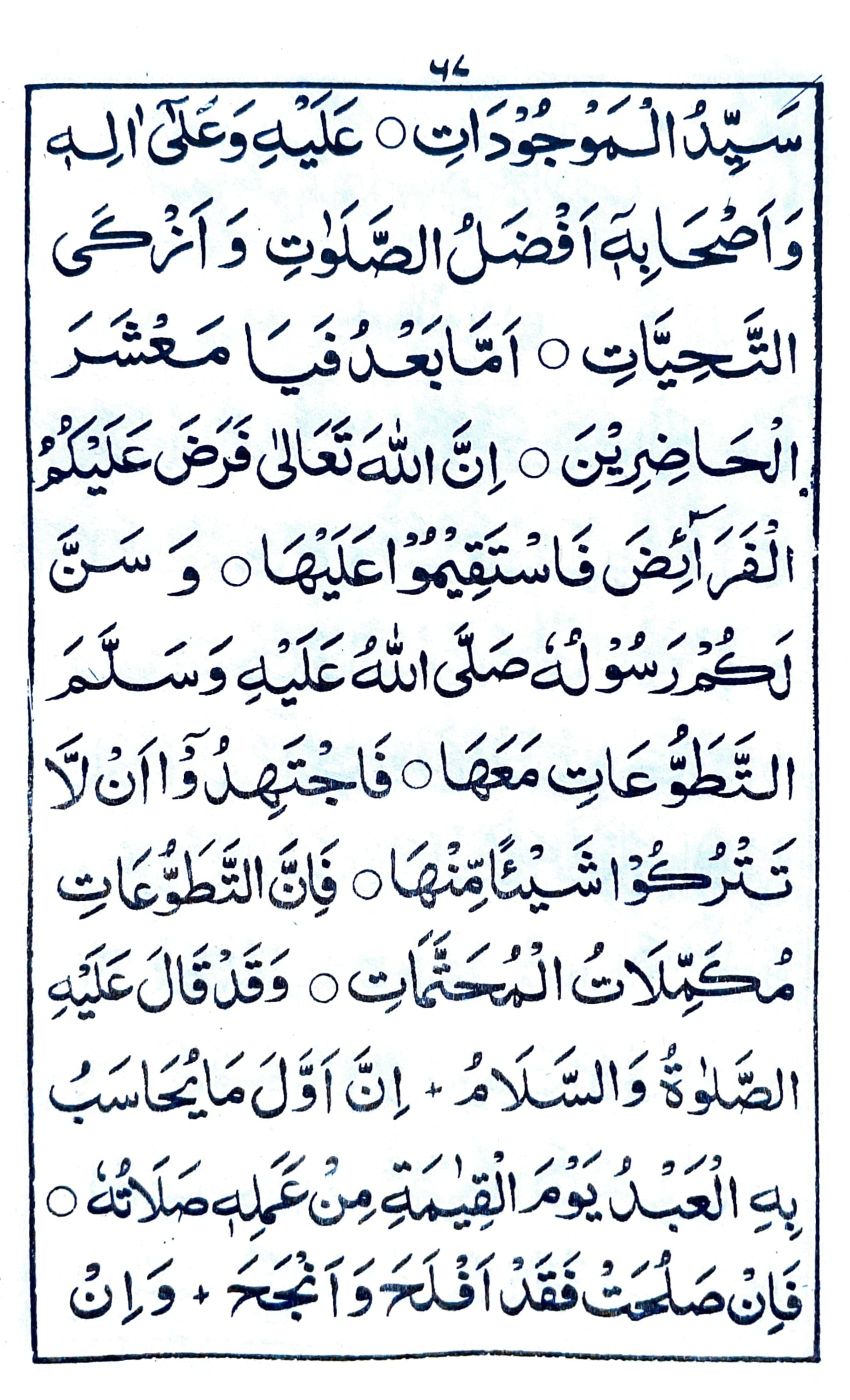 ۶۸
سَيِّدُ الْمَوْجُوْدَاتِ ○ عَلَيْهِ وَعَلٰٓى اٰلِهٖ
وَاَصْحَابِهٖٓ اَفْضَلُ الصَّلَوٰتِ وَ اَزْكَى
التَّحِيَّاتِ ○ اَمَّا بَعْدُ فَيَا مَعْشَرَ
الْحَاضِرِيْنَ ○ اِنَّ اللّٰهَ تَعَالٰى فَرَضَ عَلَيْكُمُ
الْفَرَآئِضَ فَاسْتَقِيْمُوْا عَلَيْهَا ○ وَ سَنَّ
لَكُمْ رَسُوْلُهٗ صَلَّى اللّٰهُ عَلَيْهِ وَسَلَّمَ
التَّطَوُّعَاتِ مَعَهَا ○ فَاجْتَهِدُوْٓا اَنْ لَّا
تَتْرُكُوْا شَيْئًا مِّنْهَا ○ فَاِنَّ التَّطَوُّعَاتِ
مُكَمِّلَاتُ الْمُحَتَّمَاتِ ○ وَقَدْ قَالَ عَلَيْهِ
الصَّلٰوةُ وَالسَّلَامُ + اِنَّ اَوَّلَ مَا يُحَاسَبُ
بِهِ الْعَبْدُ يَوْمَ الْقِيٰمَةِ مِنْ عَمَلِهٖ صَلَاتُهٗ ○
فَاِنْ صَلُحَتْ فَقَدْ اَفْلَحَ وَاَنْجَحَ + وَاِنْ